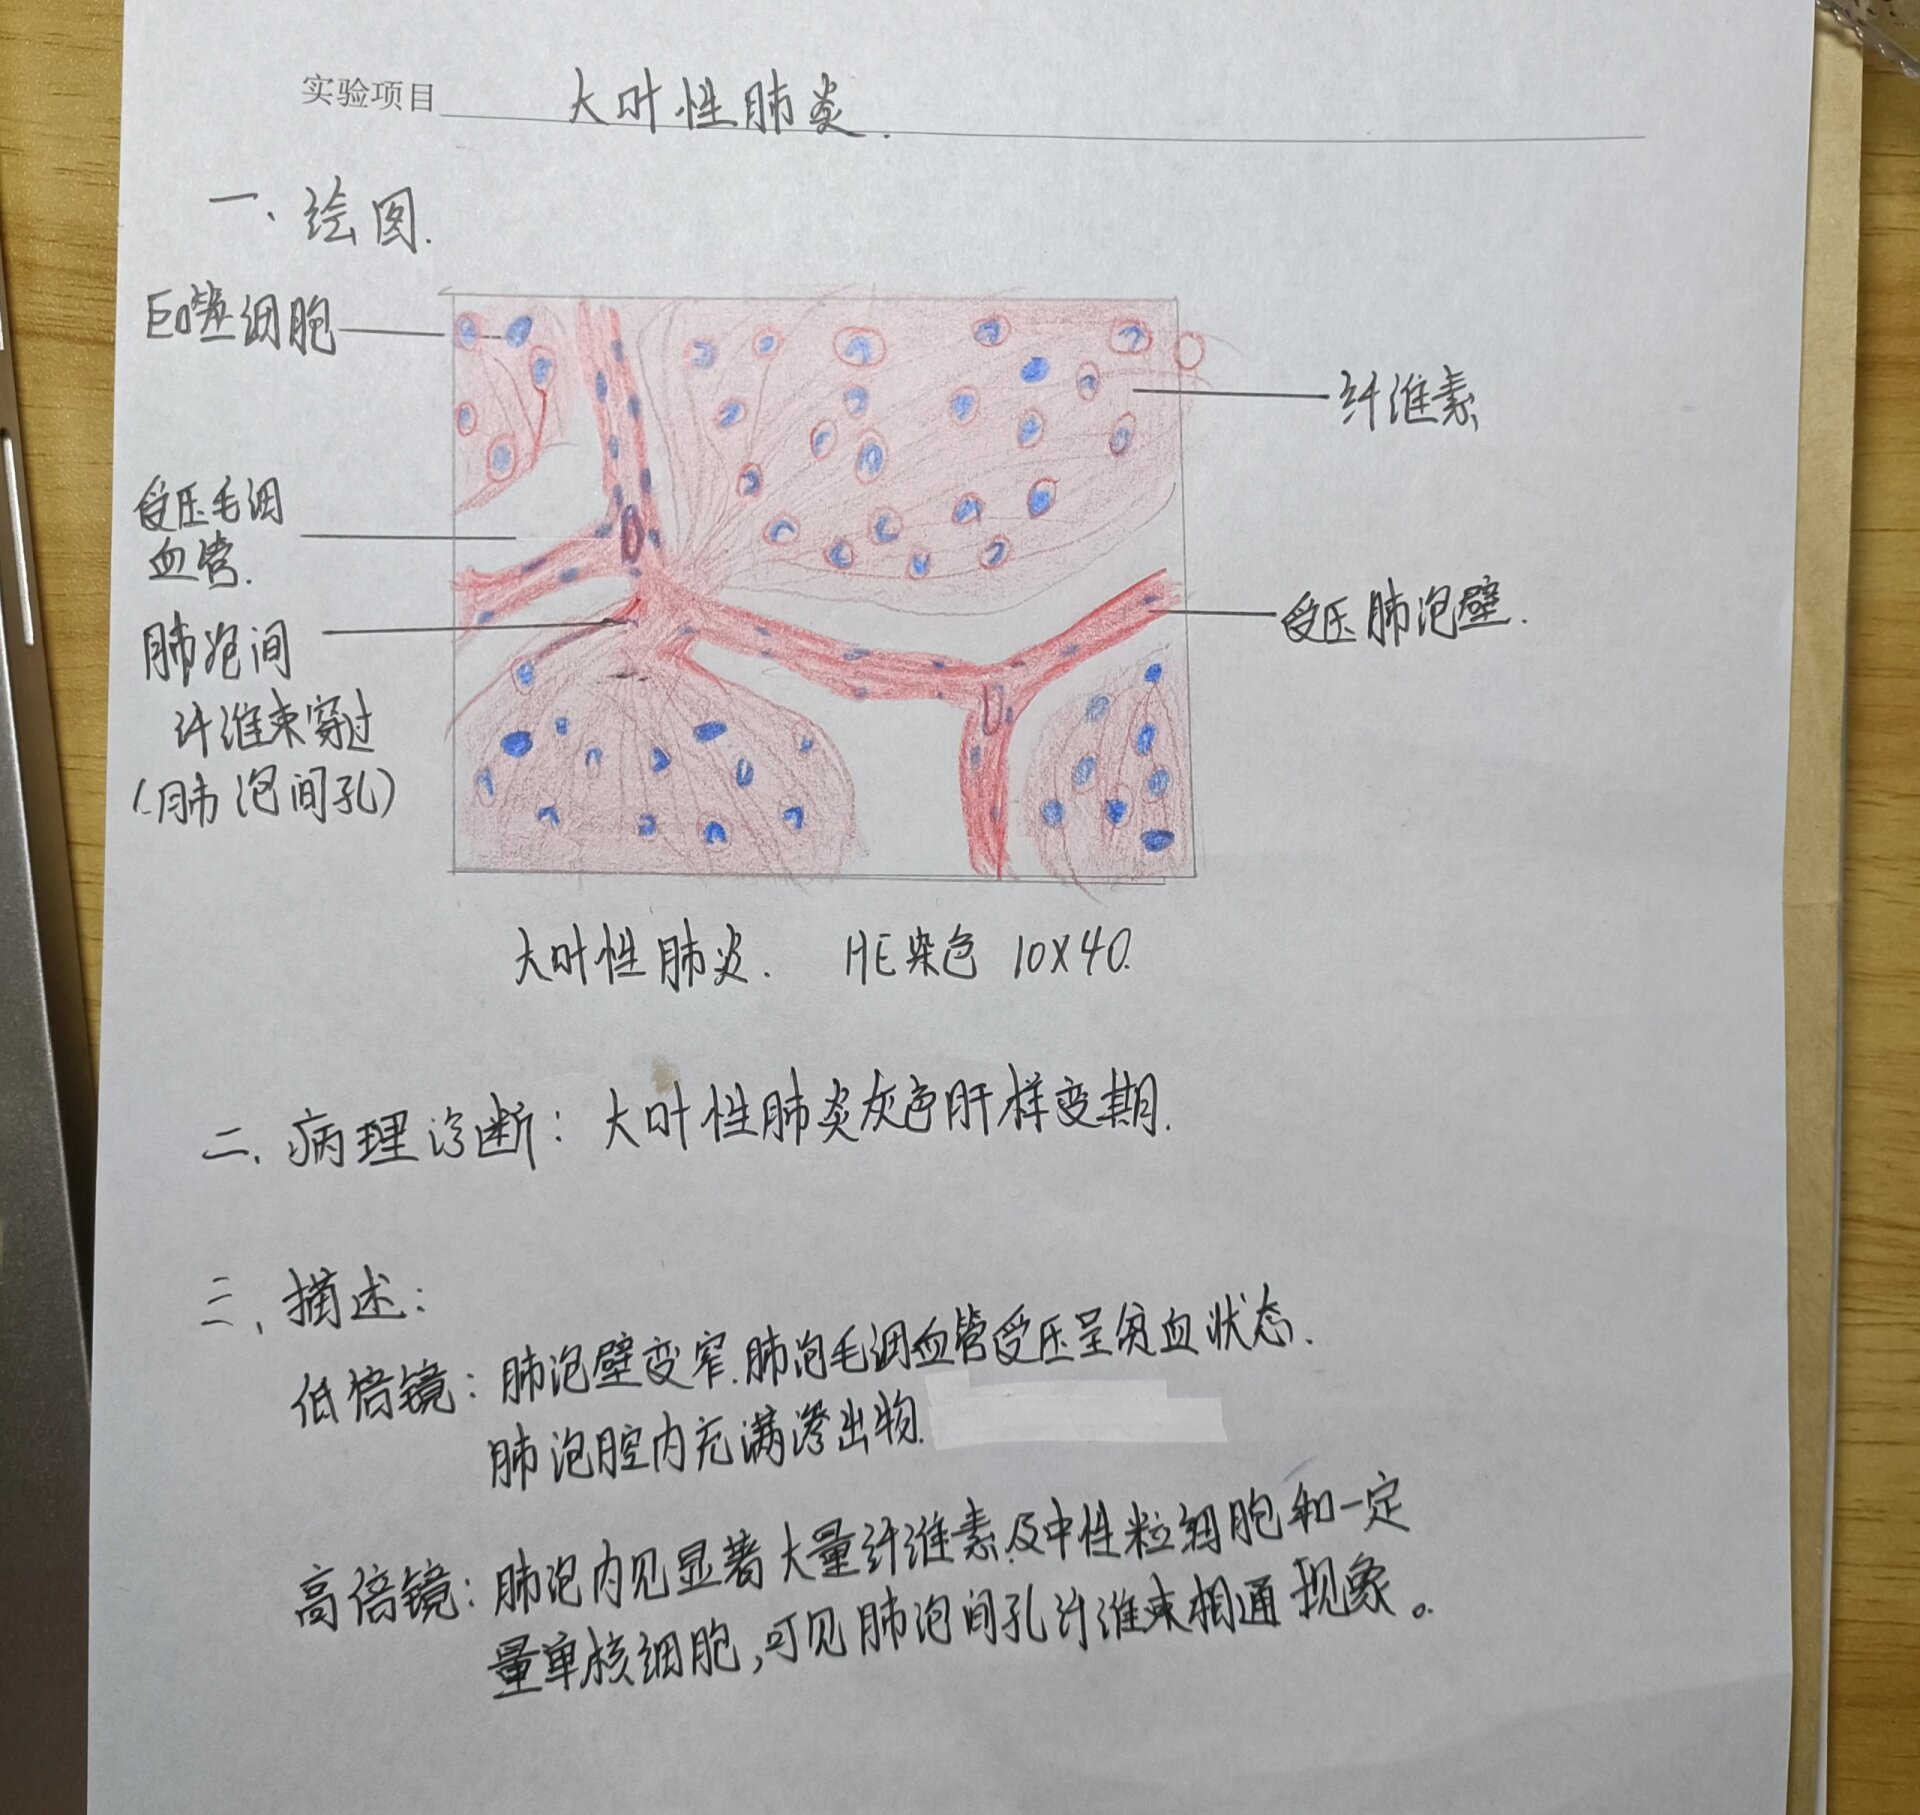 实验项目 大叶性肺炎.
一、绘图.
巨噬细胞
纤维素
受压毛细
血管.
肺泡间
纤维束穿过
(肺泡间孔)
受压肺泡壁.
大叶性肺炎. HE染色 10X40.
二、病理诊断：大叶性肺炎灰色肝样变期.
三、描述：
低倍镜：肺泡壁变窄.肺泡毛细血管受压呈贫血状态.
肺泡腔内充满渗出物.
高倍镜：肺泡内见显著大量纤维素及中性粒细胞和一定
量单核细胞,可见肺泡间孔纤维束相通现象。